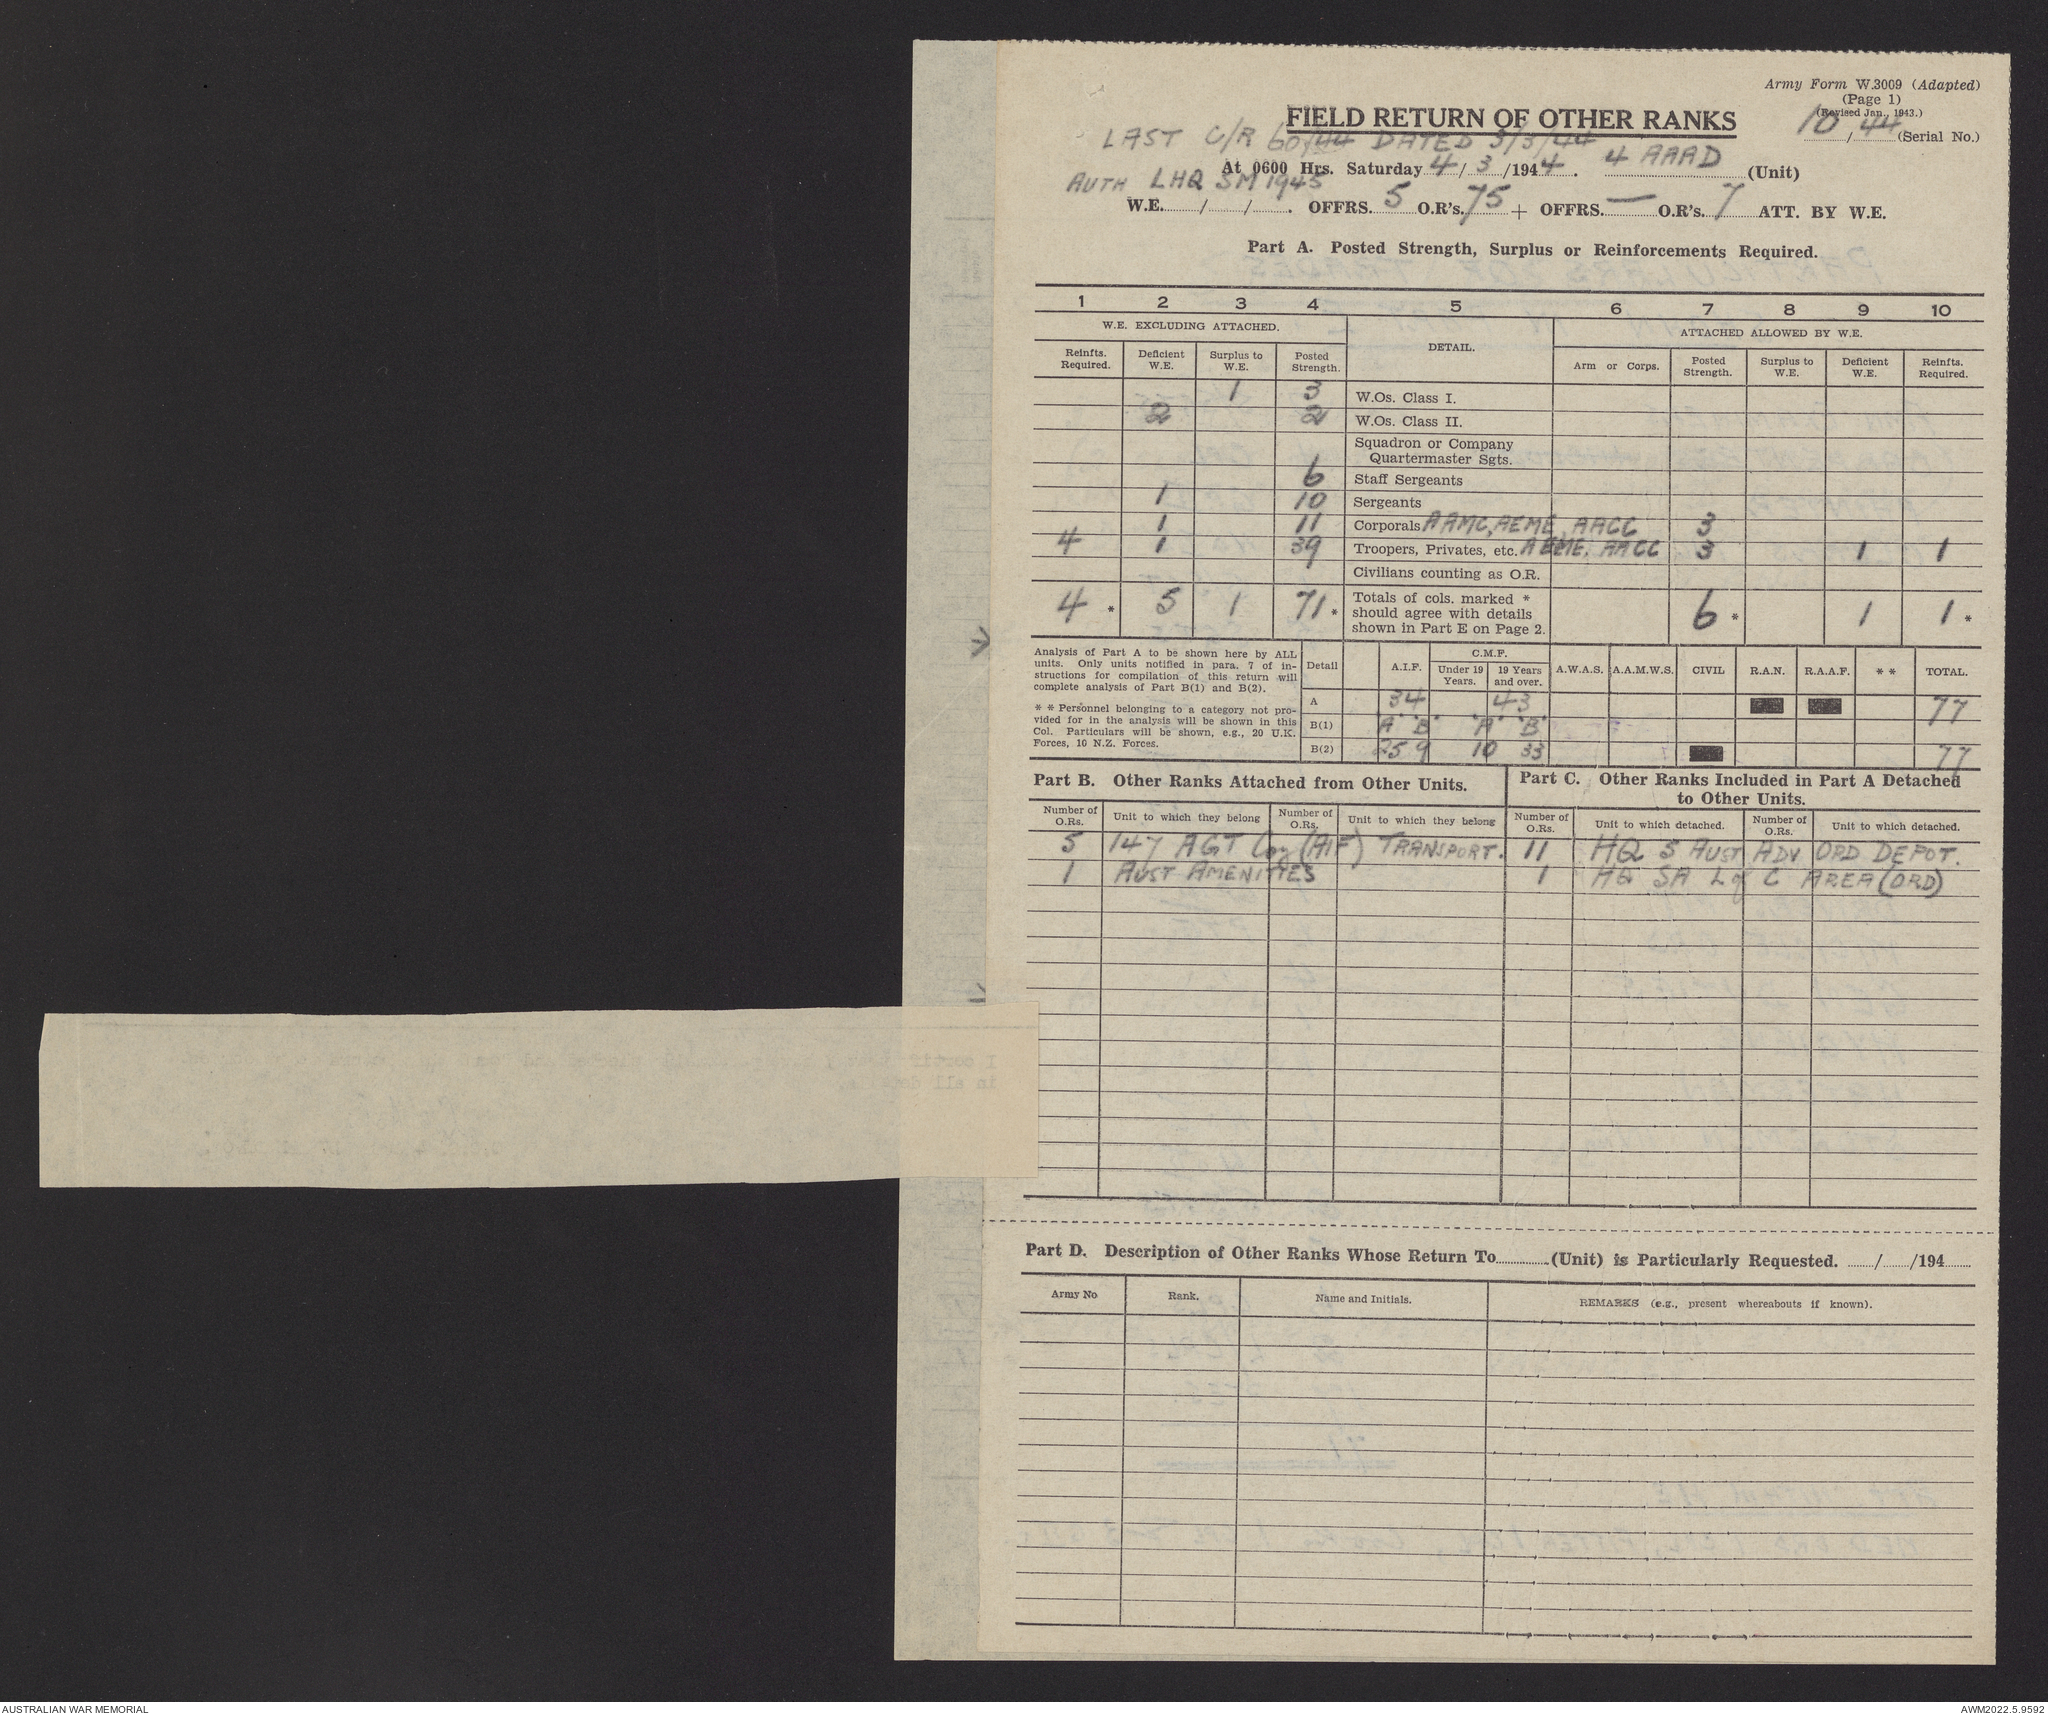 Army Form W.3009 (Adapted)
(Page 1)
(Revised Jan., 1943.)
FIELD RETURN OF OTHER RANKS
10/44 (Serial No.)
LAST C/R 60/44 DATED 3/3/44
At 0600 Hrs. Saturday 4/3/1944. 4 AAAD (Unit)
AUTH LHQ SM 1945
W.E. / / . OFFRS. 5 O.R's. 75 + OFFRS. — O.R's. 7 ATT. BY W.E.
Part A. Posted Strength, Surplus or Reinforcements Required.
1 2 3 4 5 6 7 8 9 10
W.E. EXCLUDING ATTACHED. DETAIL. ATTACHED ALLOWED BY W.E.
Reinfts. Required. Deficient W.E. Surplus to W.E. Posted Strength. Arm or Corps. Posted Strength. Surplus to W.E. Deficient W.E. Reinfts. Required.
1 3 W.Os. Class I.
2 2 W.Os. Class II.
Squadron or Company
Quartermaster Sgts.
6 Staff Sergeants
1 10 Sergeants
1 11 Corporals AAMC, AEME, AACC 3
4 1 39 Troopers, Privates, etc. AEME, AACC 3 1 1
Civilians counting as O.R.
4 * 5 1 71 * Totals of cols. marked * should agree with details shown in Part E on Page 2. 6 * 1 1 *
Analysis of Part A to be shown here by ALL
units. Only units notified in para. 7 of in-
structions for compilation of this return will
complete analysis of Part B(1) and B(2).
* * Personnel belonging to a category not pro-
vided for in the analysis will be shown in this
Col. Particulars will be shown, e.g., 20 U.K.
Forces, 10 N.Z. Forces.
Detail A.I.F. C.M.F. Under 19 Years. 19 Years and over. A.W.A.S. A.A.M.W.S. CIVIL R.A.N. R.A.A.F. * * TOTAL.
A 34 43 77
B(1) 'A' 'B' 'A' 'B'
B(2) 25 9 10 33 77
Part B. Other Ranks Attached from Other Units.
Number of O.Rs. Unit to which they belong Number of O.Rs. Unit to which they belong
5 147 AGT Coy (AIF) TRANSPORT.
1 AUST AMENITIES
Part C. Other Ranks Included in Part A Detached
to Other Units.
Number of O.Rs. Unit to which detached. Number of O.Rs. Unit to which detached.
11 HQ 5 AUST ADV ORD DEPOT.
1 HQ SA L of C AREA (ORD)
Part D. Description of Other Ranks Whose Return To (Unit) is Particularly Requested. / /194
Army No Rank. Name and Initials. REMARKS (e.g., present whereabouts if known).
AUSTRALIAN WAR MEMORIAL
AWM2022.5.9592